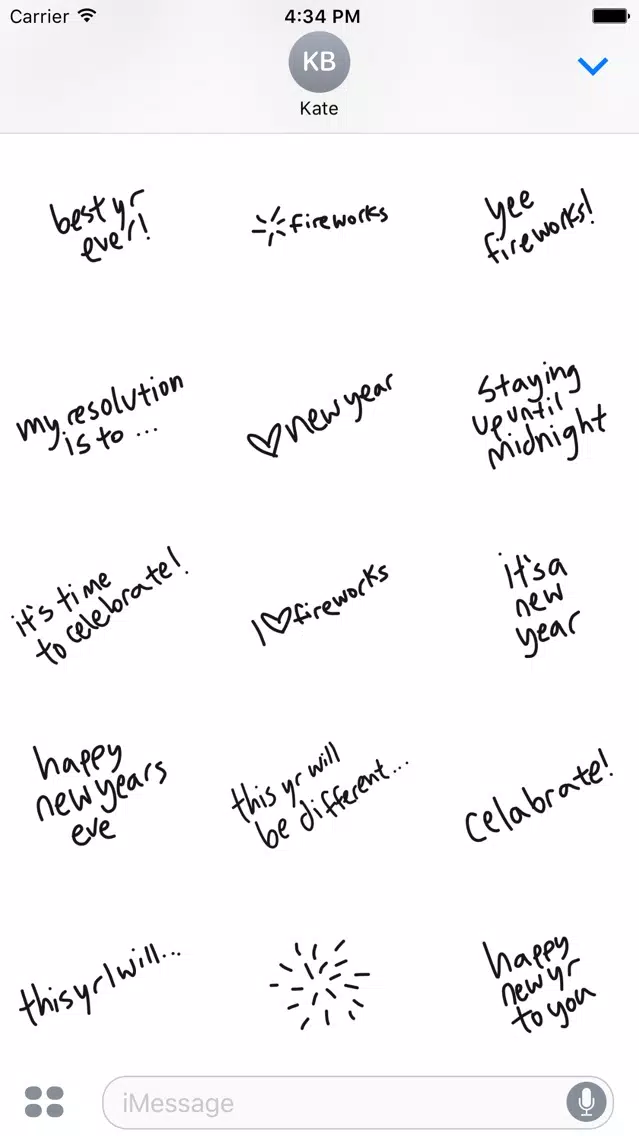 Carrier 4:34 PM
KB
Kate
best yr
ever!
fireworks
yee
fireworks!
my resolution
is to ...
new year
staying
up until
midnight
it's time
to celebrate!
I ♡ fireworks
it's a
new
year
happy
new years
eve
this yr will
be different...
celabrate!
this yr I will...
happy
new yr
to you
iMessage